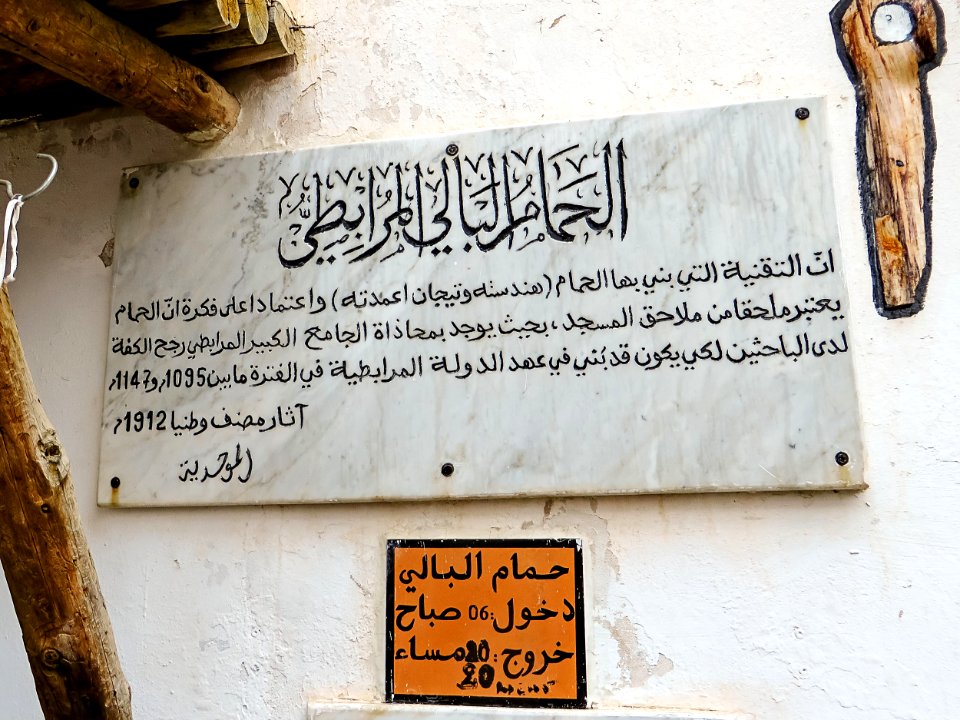 الحمام البالي المرابطي
انّ التقنية التي بني بها الحمام (هندسته وتيجان اعمدته) واعتمادا على فكرة انّ الحمام
يعتبر ملحقا من ملاحق المسجد، بحيث يوجد بمحاذاة الجامع الكبير المرابطي رجح الكفة
لدى الباحثين لكي يكون قد بُني في عهد الدولة المرابطية في الفترة ما بين 1095م و1147م
آثار مصنف وطنيا 1912م
الموحدية
حمام البالي
دخول: 06 صباح
خروج: مساء
20